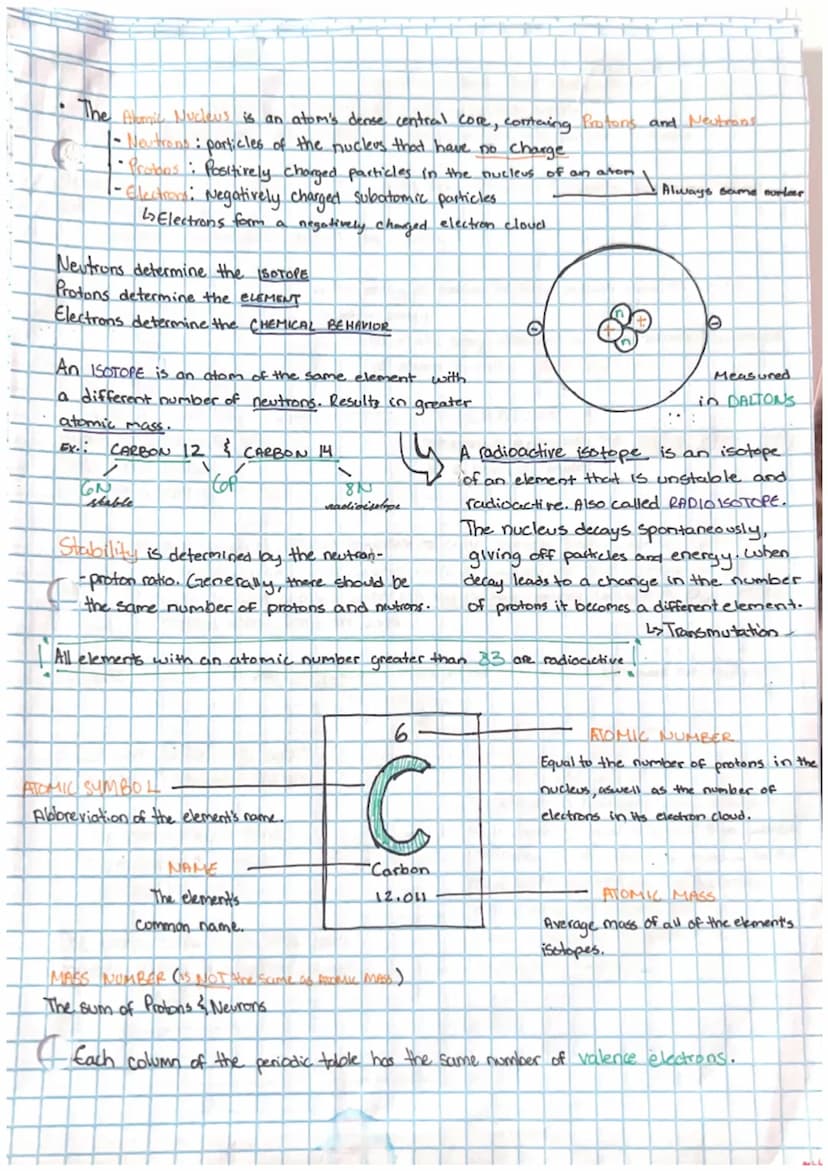 • The Atomic Nucleus is an atom's dense central core, containg Protons and Neutrons
- Neutrons : particles of the nucleus that have no charge
- Protons : Positively charged particles in the nucleus of an atom
- Electrons: Negatively charged subatomic particles
Always same number
↳ Electrons form a negatively charged electron cloud
Neutrons determine the ISOTOPE
Protons determine the ELEMENT
Electrons determine the CHEMICAL BEHAVIOR
n
+
+
n
-
-
Measured
in DALTONS
An ISOTOPE is an atom of the same element with
a different number of neutrons. Results in greater
atomic mass.
Ex.: CARBON 12 & CARBON 14
6N
6P
8N
stable
radioisotope
A radioactive isotope is an isotope
of an element that is unstable and
radioactive. Also called RADIOISOTOPE.
The nucleus decays spontaneously,
giving off particles and energy. When
decay leads to a change in the number
of protons it becomes a different element.
↳ Transmutation
Stability is determined by the neutron-
-proton ratio. Generally, there should be
the same number of protons and neutrons.
! All elements with an atomic number greater than 83 are radioactive !
6
C
Carbon
12.011
ATOMIC NUMBER
Equal to the number of protons in the
nucleus, aswell as the number of
electrons in its electron cloud.
ATOMIC SYMBOL
Abbreviation of the element's name.
NAME
The element's
common name.
ATOMIC MASS
Average mass of all of the element's
isotopes.
MASS NUMBER (IS NOT the same as ATOMIC MASS)
The sum of Protons & Neurons
Each column of the periodic table has the same number of valence electrons.